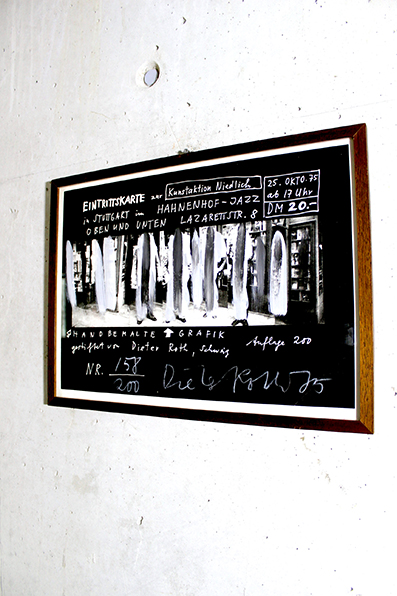 EINTRITTSKARTE zur Kunstaktion Niedlich
in STUTTGART im HAHNENHOF-JAZZ
OBEN UND UNTEN LAZARETTSTR. 8
25. OKTO. 75
ab 17 Uhr
DM 20.-
HANDBEMALTE GRAFIK
gestiftet von Dieter Roth, Auflage 200
NR. 158/200 Dieter Roth 75